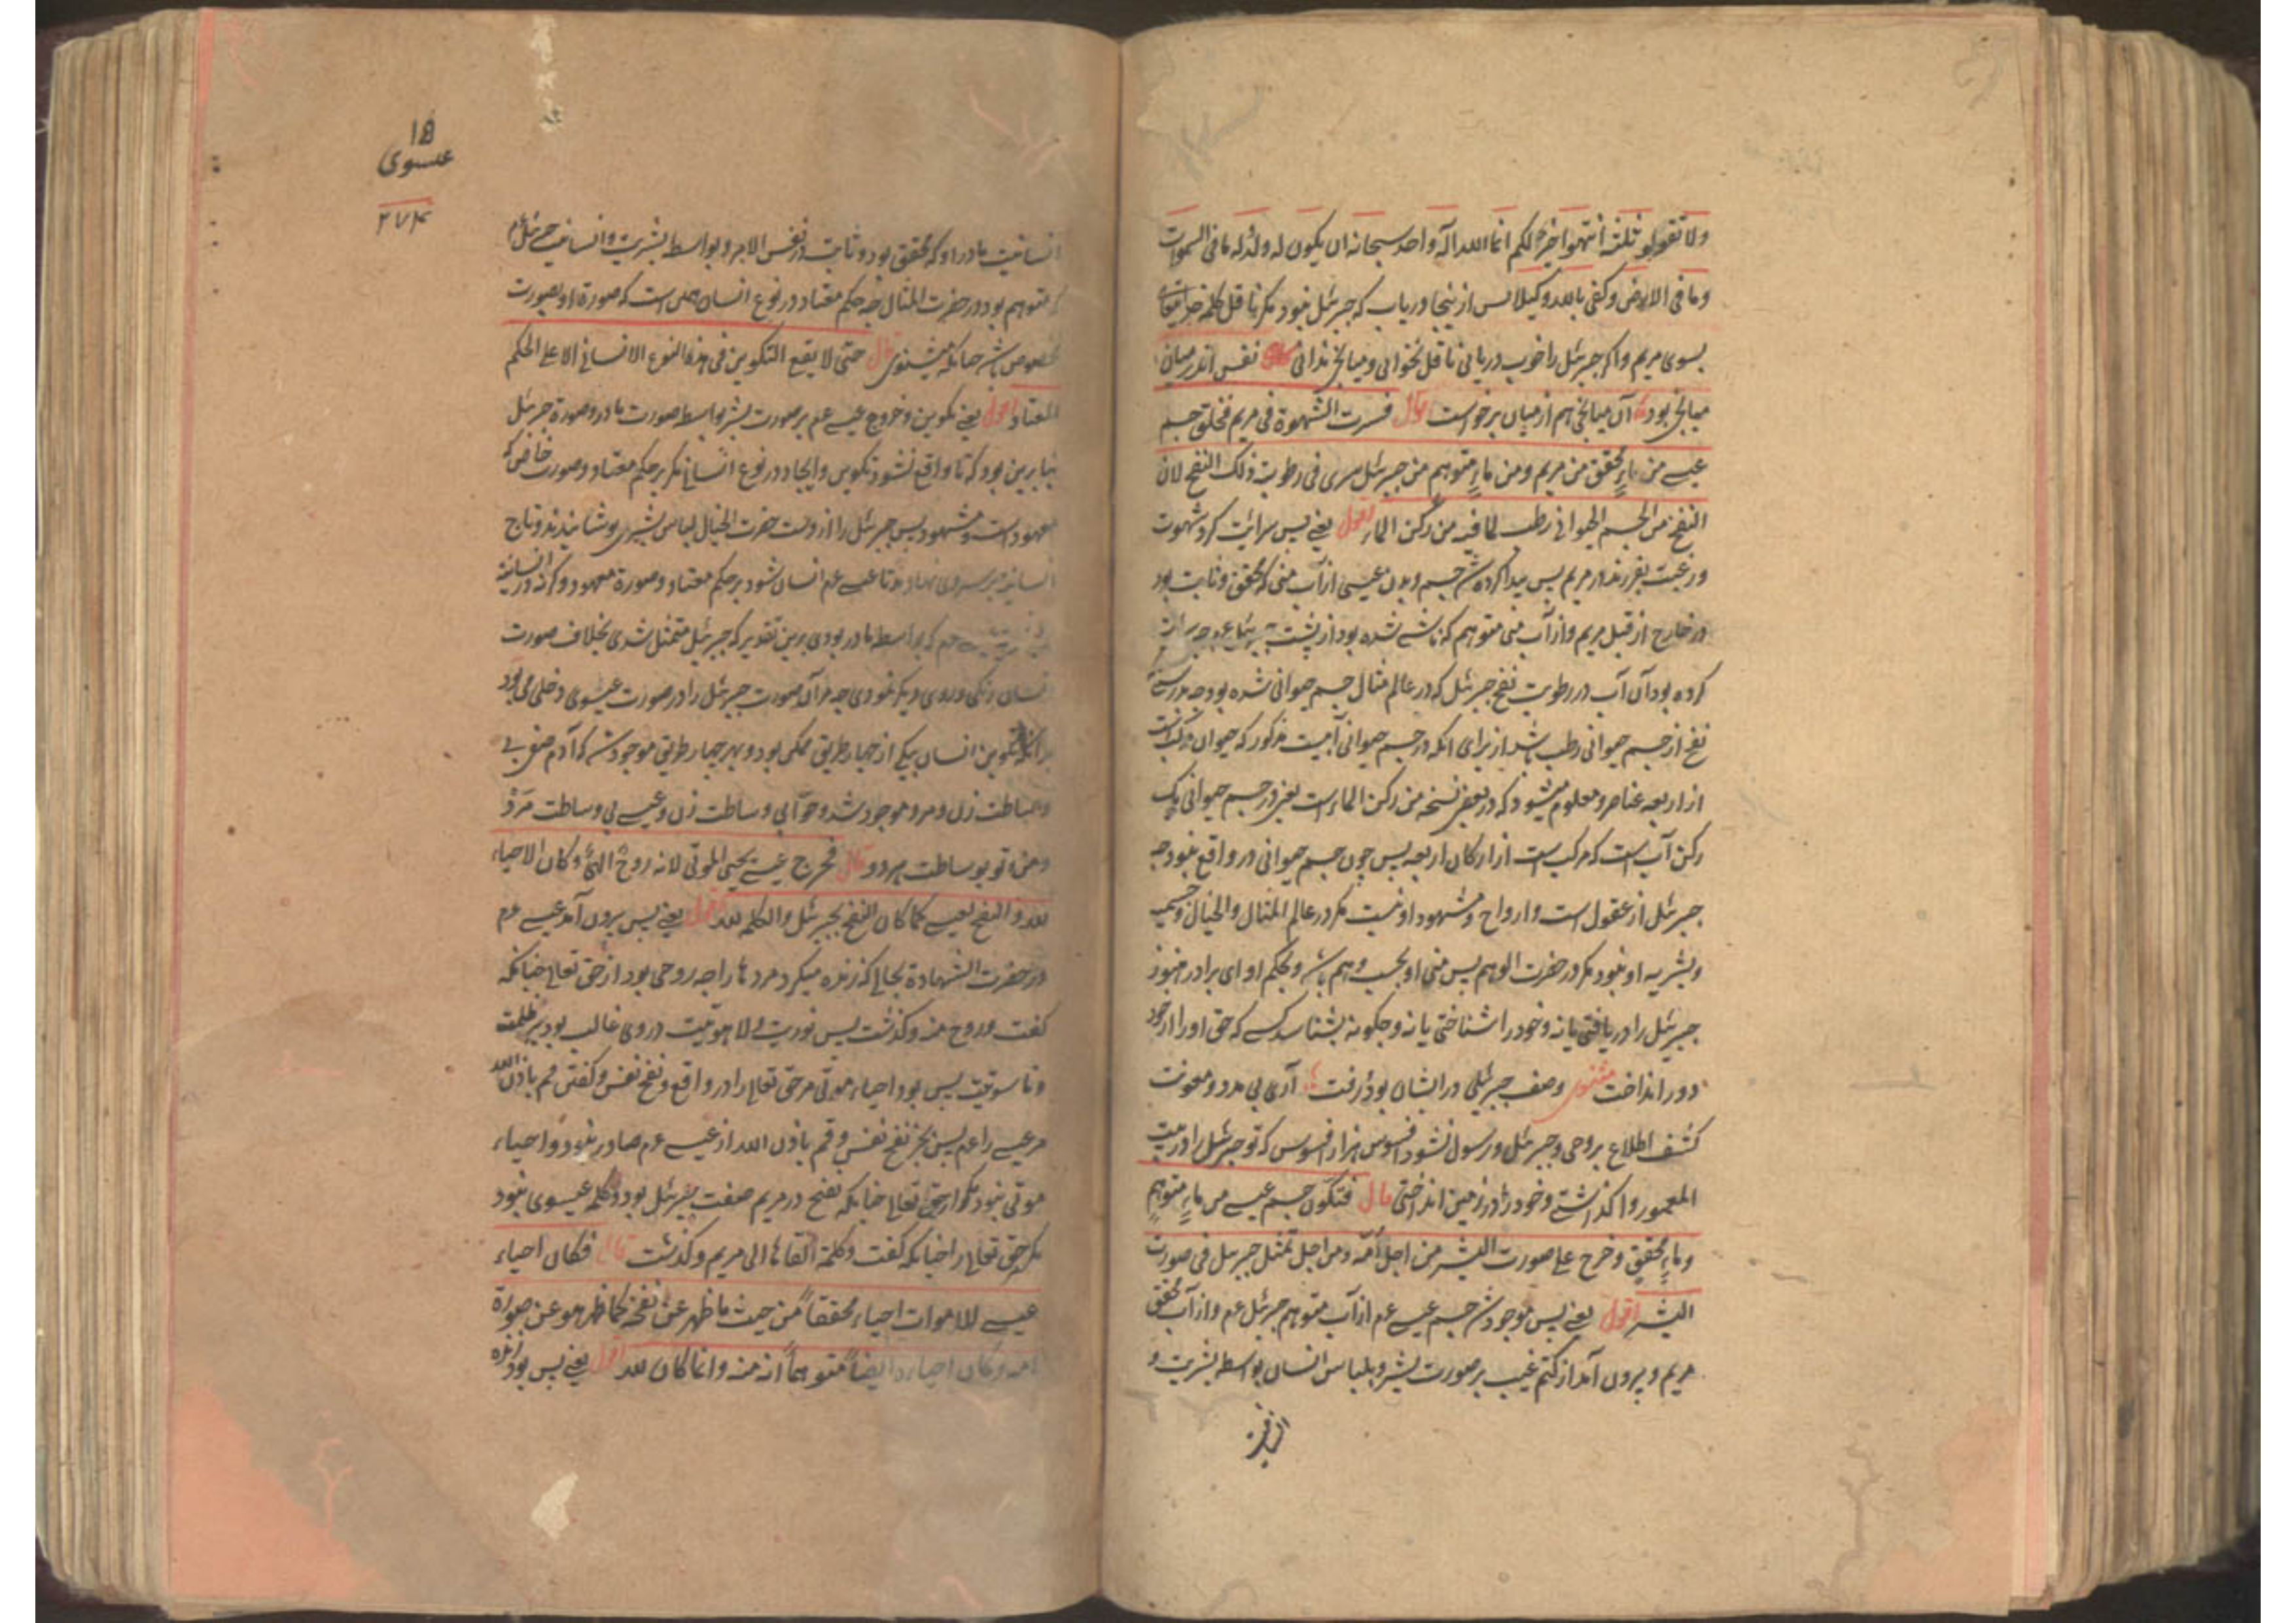 ولا تقولوا ثلثة انتهوا خیرا لکم انما الله اله واحد سبحانه ان یکون له ولد له ما فی السموات
وما فی الارض وکفی بالله وکیلا پس از ینجا دریاب که جبرئیل نبود مکر ناقل کلمه
بسوی مریم واکر جبرئیل را خوب دریابی ناقل نخوانی ومیانجی ندانی نفس اندر میان
میانجی بود آن میانجی هم از میان برخواست قال فسرت الشهوة فی مریم فخلق جسم
عیسے من ماءٍ محقق من مریم ومن ماءٍ متوهم من جبرئیل سری فی رطوبت ذلک النفخ لان
النفخ من الجسم الحیوانی رطب لما فیه من رکن الماء اقول یعنے پس سرایت کرد شهوت
ورغبت بفرزند در مریم پس پیدا کرده شد جسم وبدن عیسی از آب منی که محقق وثابت بود
در خارج از قبل مریم واز آب منی متوهم که ناشے شده بود از
کرده بود آن آب در رطوبت نفخ جبرئیل که در عالم مثال جسم حیوانی شده بود چه بدرستے
نفخ از جسم حیوانی رطب باشد از برای انکه در جسم حیوانی آبیت مذکور که حیوان مرکب است
از اربعه عناصر ومعلوم میشود که در بعض نسخه من رکن الماء است یعنے در جسم حیوانی یک
رکن آب است که مرکب است از ارکان اربعه پس چون جسم حیوانی در واقع نبود چه
جبرئیل از عقول است وارواح ومشهود او نیست مکر در عالم المثال والخیال وجسمیت
وبشریه او نبود مکر در حضرت الوهم پس منی او بحسب وهم باشد وبحکم او ای برادر هنوز
جبرئیل را دریافتی یا نه وخود را شناختی یا نه وچکونه بشناسد کسے که حق او را از خود
دور انداخت مثنوی وصف جبرئیلی در ایشان بود رفت آری بی مدد ومعونت
کشف اطلاع بر وحی وجبرئیل ورسول نشود افسوس هزار افسوس که تو جبرئیل را در بیت
المعمور واکذاشتے وخود را در زمین انداختی قال فتکون جسم عیسے من ماءٍ متوهمٍ
وماءٍ محققٍ وخرج علے صورت البشر من اجل امّه ومن اجل تمثل جبریل فی صورت
البشر اقول یعنے پس موجود شد جسم عیسے عم از آب متوهم جبرئیل عم واز آب محقق
مریم وبیرون آمد از کتم غیب بر صورت بشر وبلباس انسان بواسطه بشریت و
18
عیسوی
۲۷۴
انسانیت مادر او که محقق بود وثابت در نفس الامر وبواسطه بشریت وانسانیت جبرئیل
که متوهم بود در حضرت المثال چه حکم معتاد در نوع انسان همین است که صورة او بصورت
مخصوص باشد چنانکه میشنوی قال حتی لا یقع التکوین فی هذا النوع الانسانی الا علی الحکم
المعتاد اقول یعنے تکوین وخروج عیسے عم بر صورت بشر بواسطه صورت مادر وصورة جبرئیل
بنا برین بود که تا واقع نشود تکوین وایجاد در نوع انسانی مکر بر حکم معتاد وصورت خاص که
معهود است ومشهود پس جبرئیل را از دست حضرت الخیال لباس بشری پوشانیدند وتاج
انسانیه بر سر وی نهادند تا عیسے عم انسان شود بر حکم معتاد وصورة معهود وکرنه در انسانیة
عم که بواسطه مادر بودی برین تقدیر که جبرئیل متمثل شدی بخلاف صورت
انسان رنکی وروی دیکر نمودی چه مر آن صورت جبرئیل را در صورت عیسوی دخلی می بود
بدانکه تکوین انسان بیکے از چهار طریق ممکن بود وبهر چهار طریق موجود شد که آدم صفی بے
وساطت زن ومرد موجود شد وحوّا بی وساطت زن وعیسے بی وساطت مرد
ومن وتو بوساطت هر دو قال فخرج عیسے یحیی الموتی لانه روح الهیٌ وکان الاحیاء
لله والنفخ لعیسے کما کان النفخ لجبرئیل والکلمه لله اقول یعنے پس بیرون آمد عیسے عم
در حضرت الشهادة بحالے که زنده میکرد مردها را چه روحی بود از حق تعالے چنانکه
کفت وروح منه وکذشت پس نوریت ولاهوتیت در وی غالب بود بر ظلمت
وناسوتیت پس بود احیاء موتی مر حق تعالے را در واقع ونفخ نفس وکفتن قم باذن الله
مر عیسے را عم پس بجز نفخ نفس وقم باذن الله از عیسے عم صادر نبود واحیاء
موتی نبود مکر از حق تعالے چنانکه نفخ در مریم صفت جبرئیل بود وکلمه عیسوی نبود
مکر حق تعالے را چنانکه کفت وکلمة القاها الی مریم وکذشت قال فکان احیاء
عیسے للاموات احیاء محققاً من حیث ما ظهر عن نفخه کما ظهر هو عن صورة
امه وکان احیاءه ایضاً متوهماً انه منه وانما کان لله اقول یعنے پس بود زنده